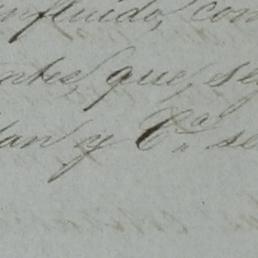 influido, con
ntes, que, se
lan y C.al se